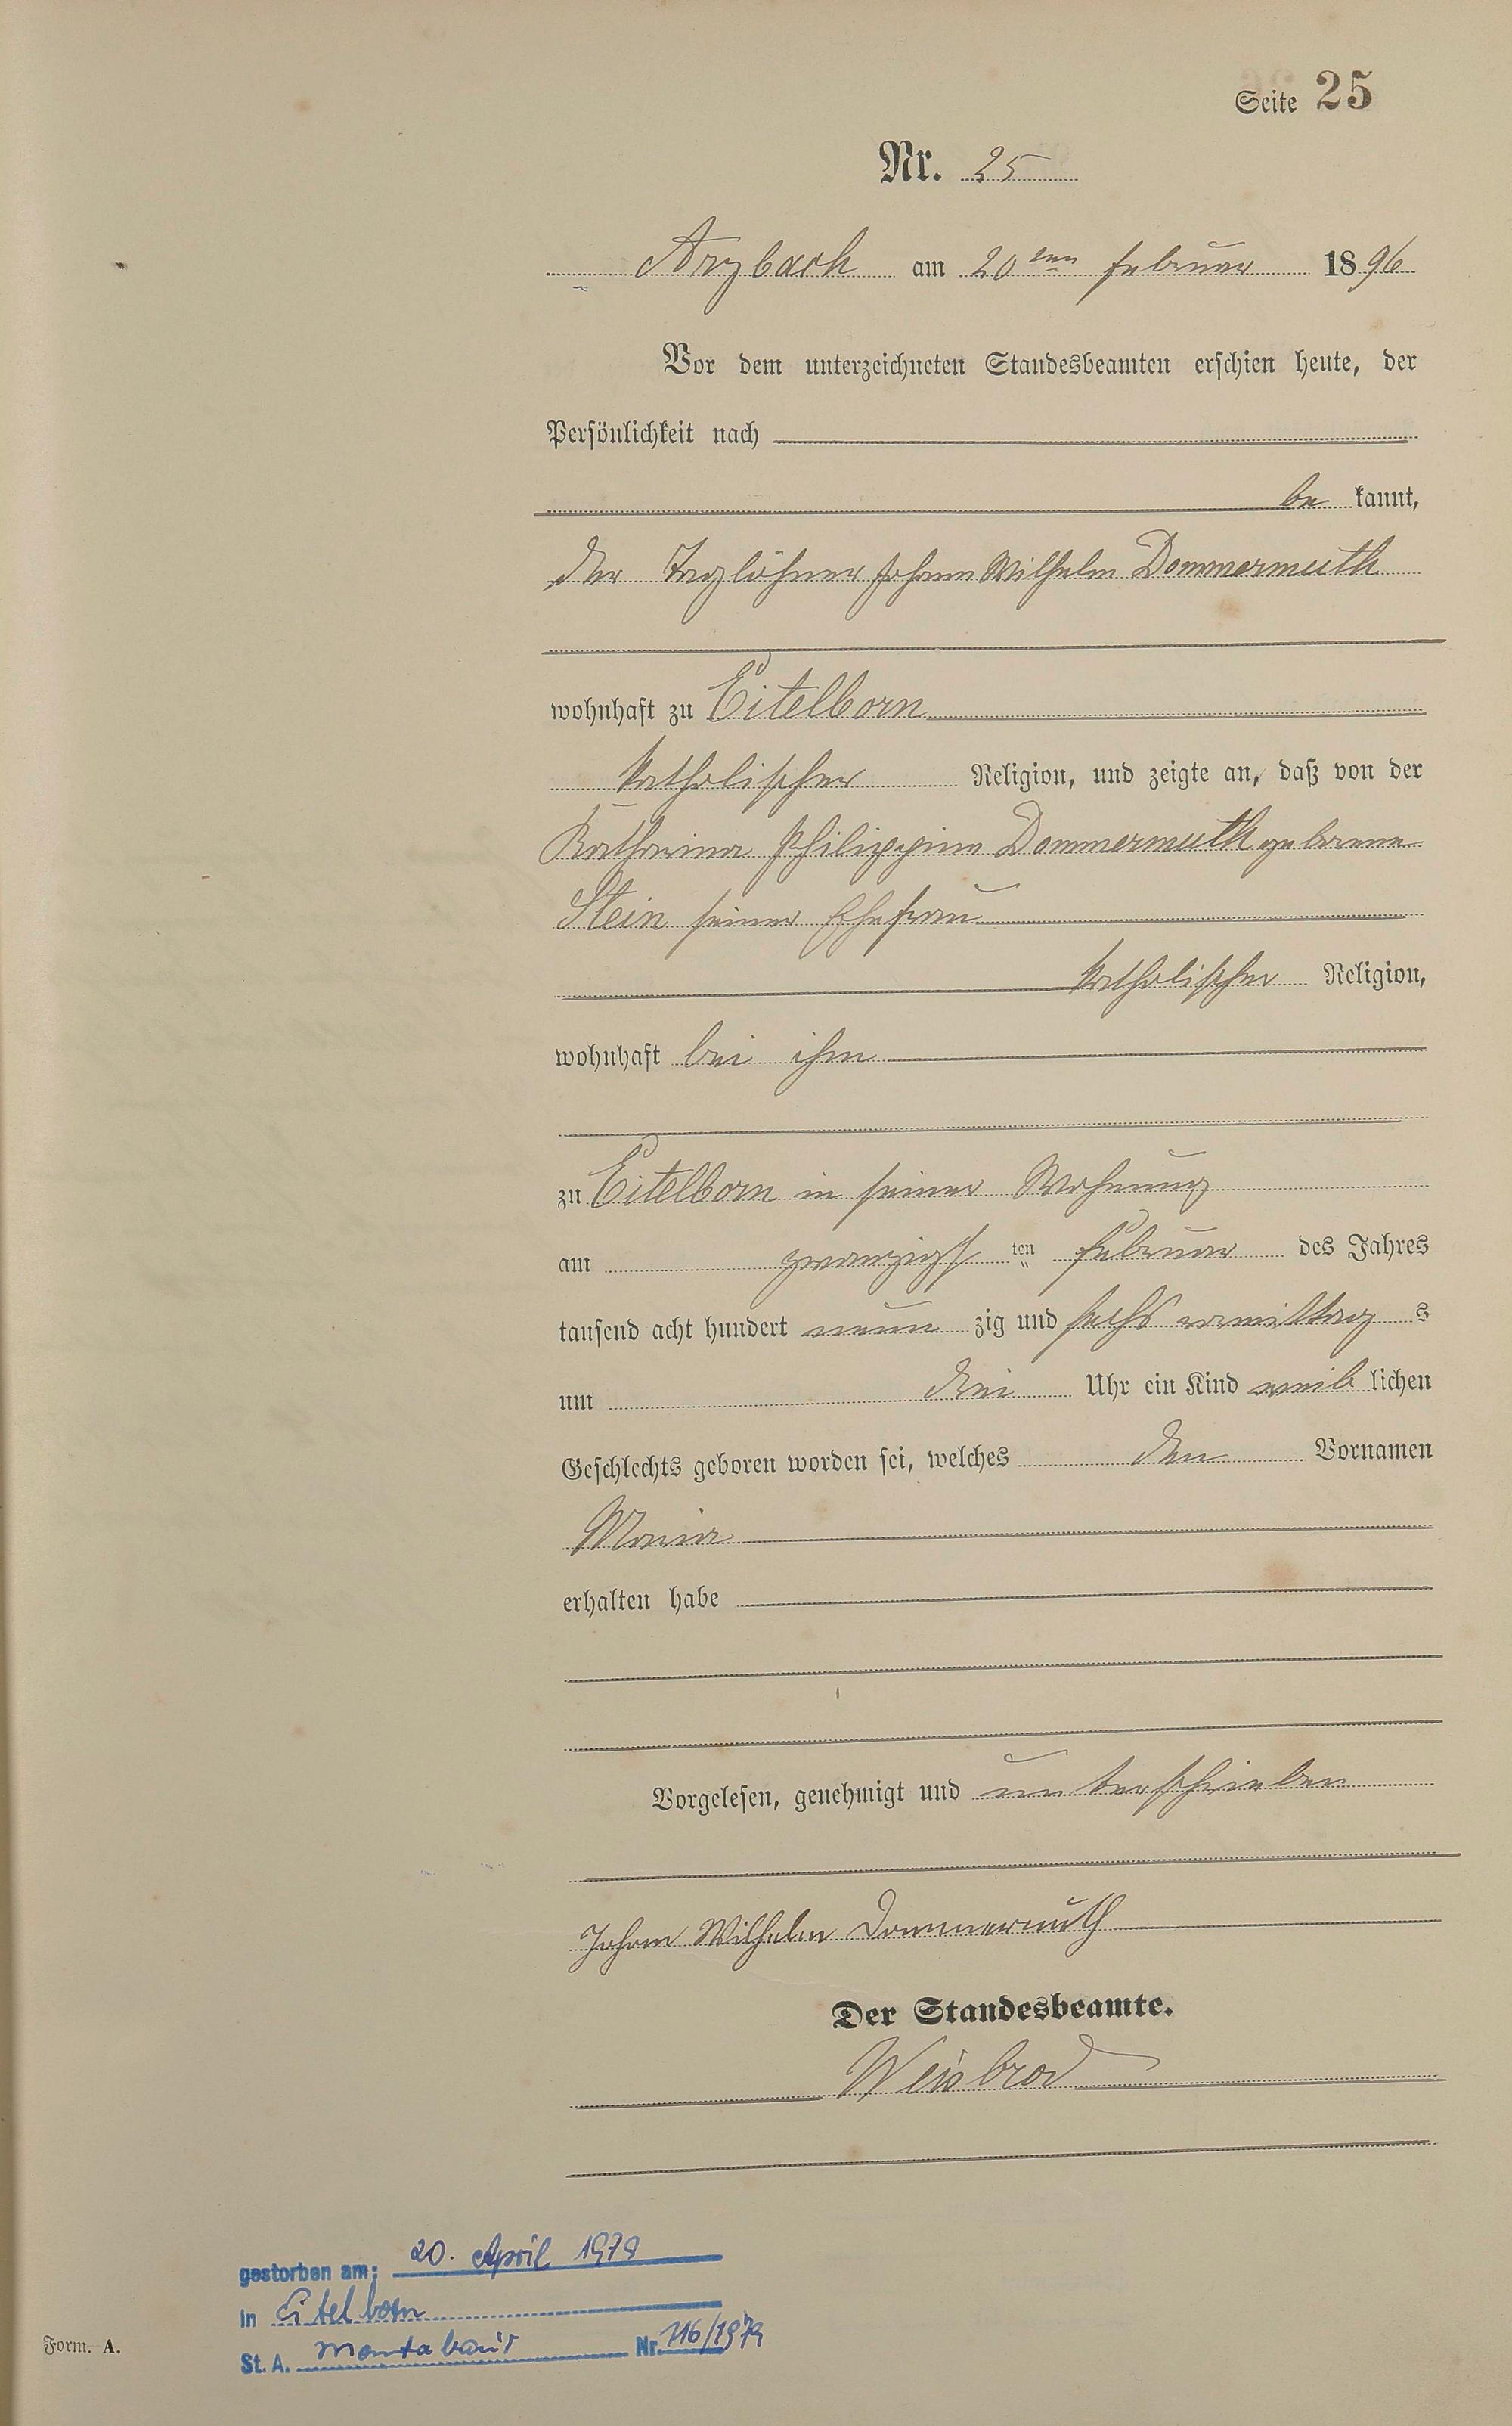 Seite 25
Nr. 25
Arzbach am 20ten Februar 1896
Vor dem unterzeichneten Standesbeamten erschien heute, der
Persönlichkeit nach
be kannt,
der Taglöhner Johann Wilhelm Dommermuth
wohnhaft zu Eitelborn
katholischer Religion, und zeigte an, daß von der
Katharina Philippina Dommermuth geborene
Stein seiner Ehefrau
katholischer Religion,
wohnhaft bei ihm
zu Eitelborn in seiner Wohnung
am zwanzigst ten Februar des Jahres
tausend acht hundert neun zig und sechs vormittag s
um drei Uhr ein Kind weib lichen
Geschlechts geboren worden sei, welches den Vornamen
Maria
erhalten habe
Vorgelesen, genehmigt und unterschrieben
Johann Wilhelm Dommermuth
Der Standesbeamte.
Weisbrod
gestorben am: 20. April 1979
in Eitelborn
St. A. Montabaur Nr. 116/1979
Form. A.